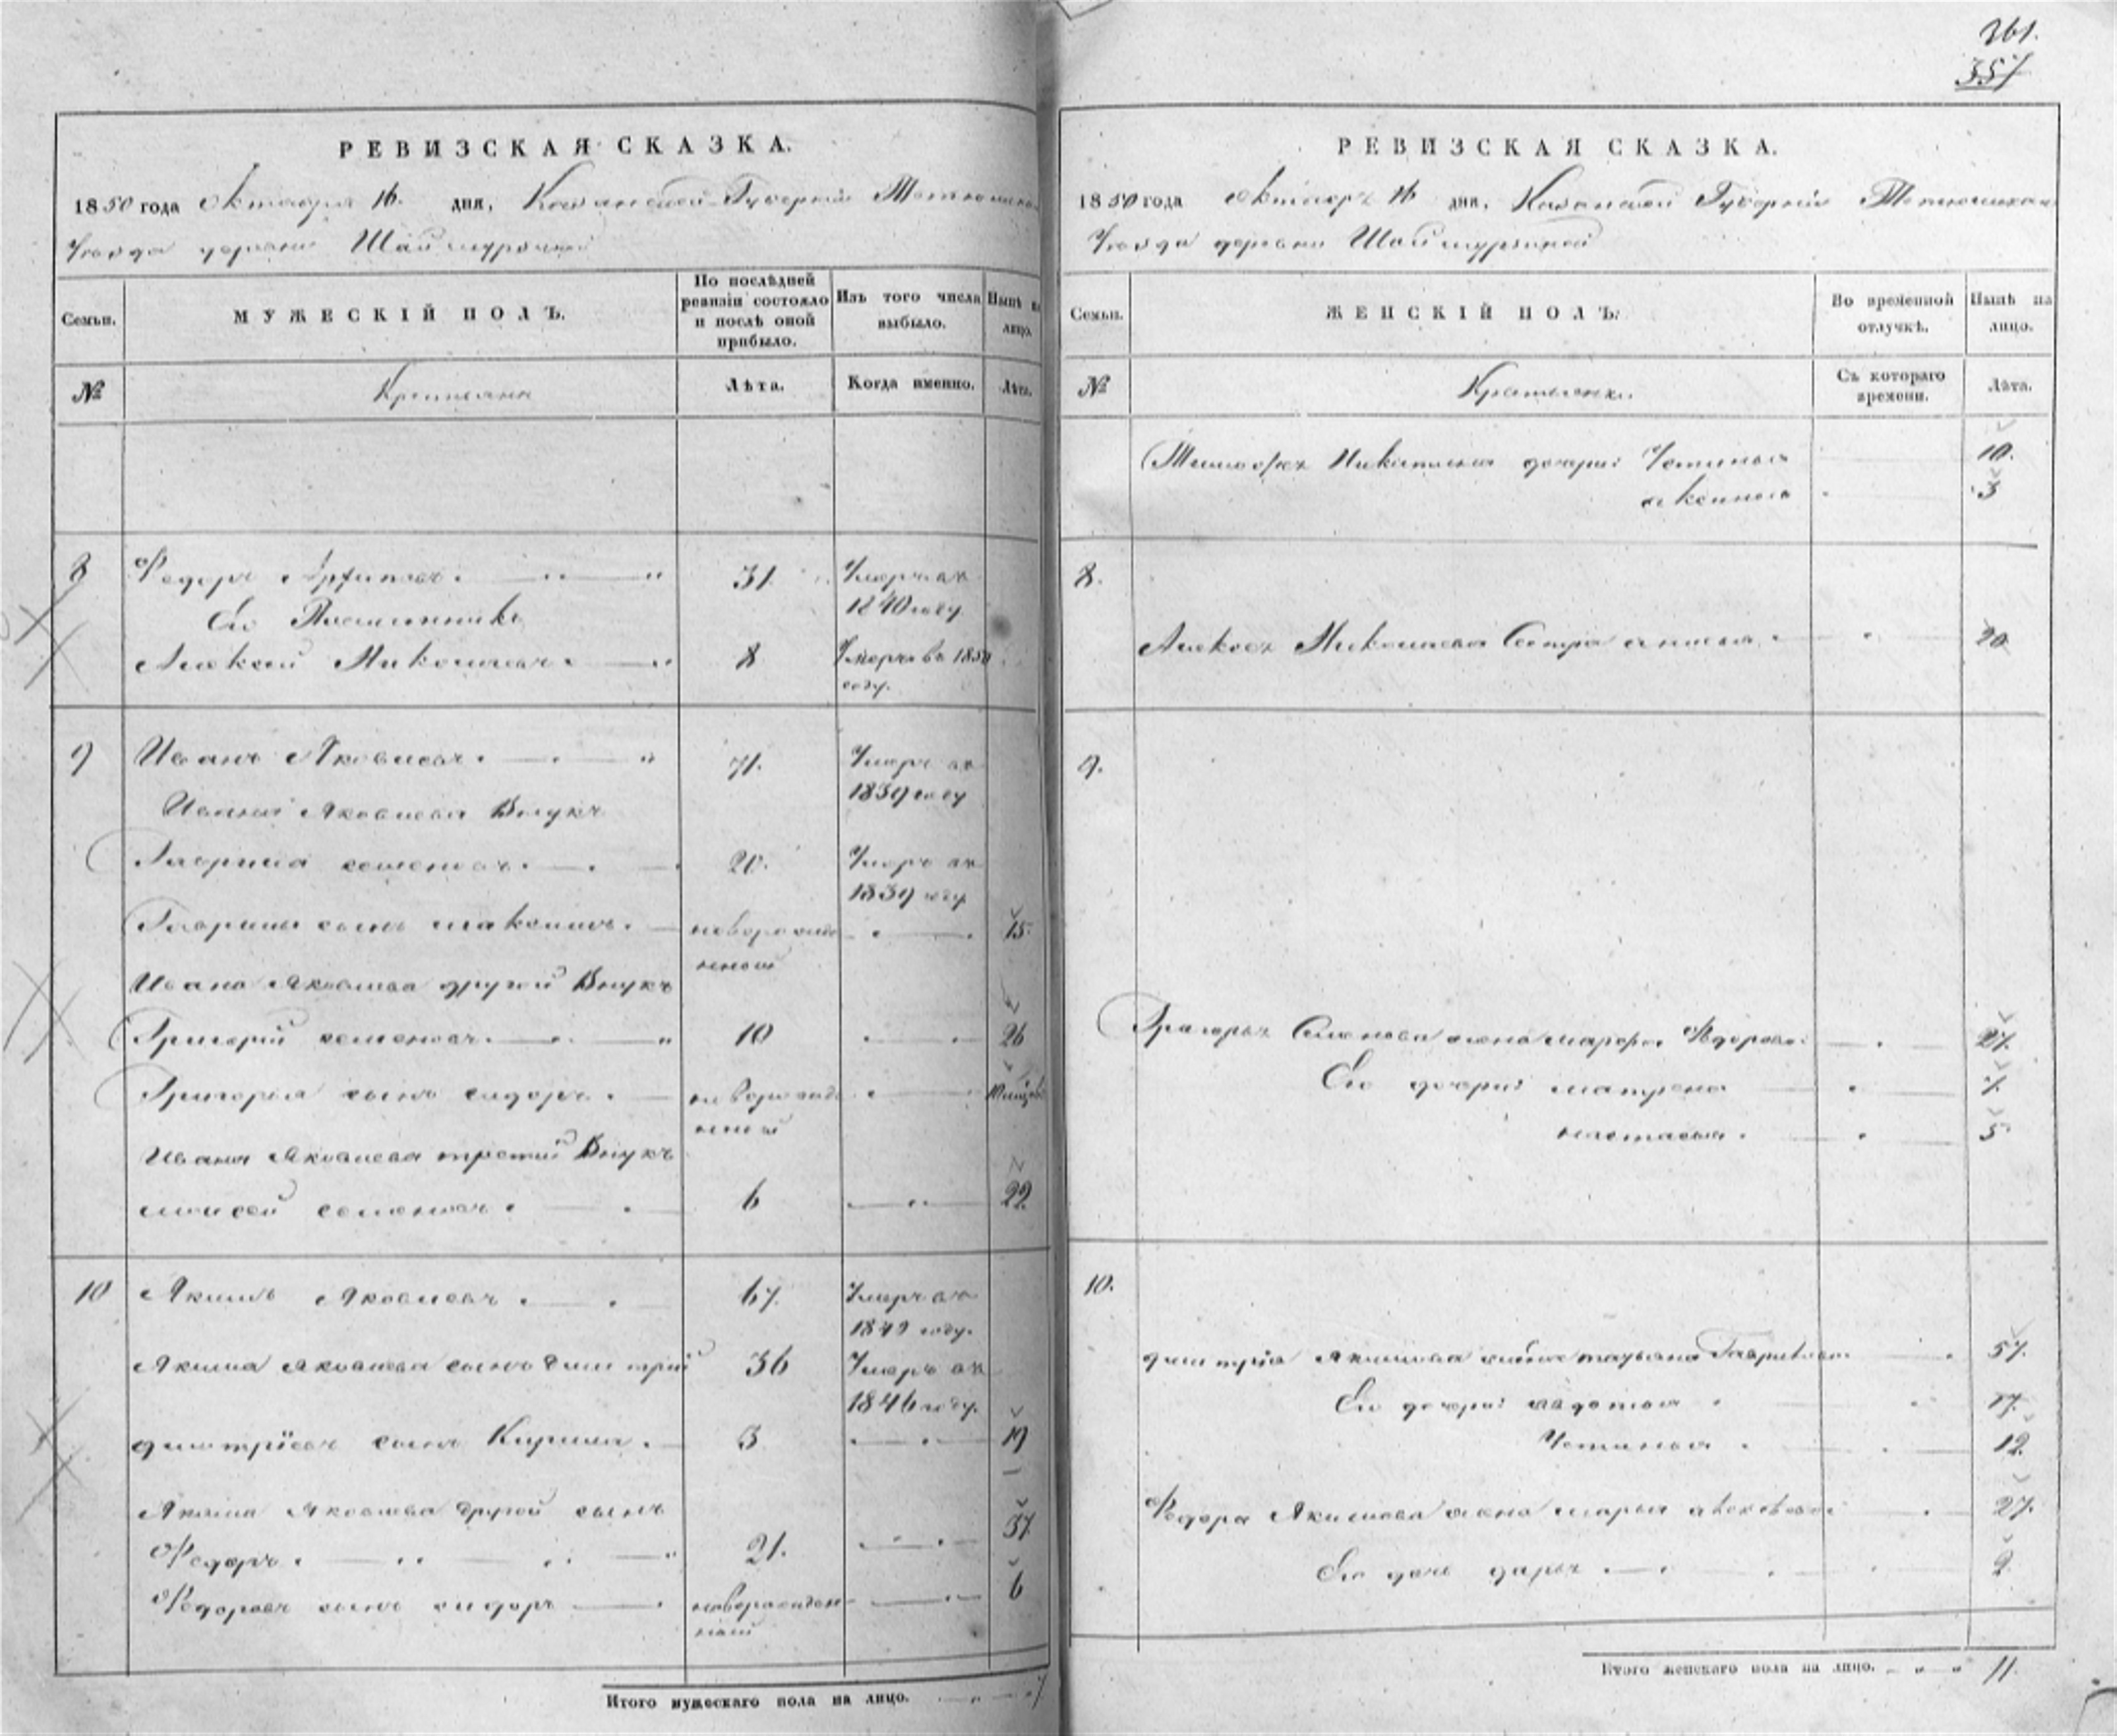 361.
357
РЕВИЗСКАЯ СКАЗКА.
1850 года Октября 16. дня, Казанской Губерній
Уезда деревни Шаймурзиной
Семьи.
МУЖЕСКІЙ ПОЛЪ.
По послѣдней ревизіи состояло и послѣ оной прибыло.
Изъ того числа выбыло.
Нынѣ на лицо.
№
Крестьяне
Лѣта.
Когда именно.
Лѣта.
8
Федоръ 31. Умеръ въ
Его Племянникъ 1840 году.
Алексей Николаевъ. 8 Умеръ въ 1850
году.
9
Иванъ Яковлевъ. 71. Умеръ въ
1839 году
Ивана Яковлева Внукъ
Гаврила семеновъ. 20. Умеръ въ
1839 году
Гаврилы сынъ максимъ. новорожде 15.
нной
Ивана Яковлева другой Внукъ
Григорій семеновъ. 10 26
Григорья сынъ сидоръ. новорожде
нной
Ивана Яковлева третий Внукъ
моисей семеновъ. 6 22.
10
Акимъ Яковлевъ. 67. Умеръ въ
1849 году.
Акима Яковлева сынъ дмитрий 36 Умеръ въ
1846 году.
дмитріевъ сынъ Кирила. 3 19
Акима Яковлева другой сынъ
Федоръ. 21. 37.
Федоровъ сынъ сидоръ новорожден 6
ный
Итого мужескаго пола на лицо. 7
РЕВИЗСКАЯ СКАЗКА.
1850 года октября 16 дня, Казанской Губерніи
Уезда деревни Шаймурзиной
Семьи.
ЖЕНСКІЙ ПОЛЪ.
Во временной отлучкѣ.
Нынѣ на лицо.
№
Крестьянки.
Съ котораго времени.
Лѣта.
Тимофея дочери: Устинья 10.
аксинья 3
8.
Алексея Николаева Сестра 20
9.
Григорья Семенова жена марфа Федорова 27.
Его дочери: матрена 7.
настасья. 5
10.
дмитрія Акимова татьяна Гаврилова 57.
Его дочери: авдотья 17.
Устинья. 12.
Федора Акимова жена марья 27.
Его дочь дарья 2
Итого женскаго пола на лицо. 11.